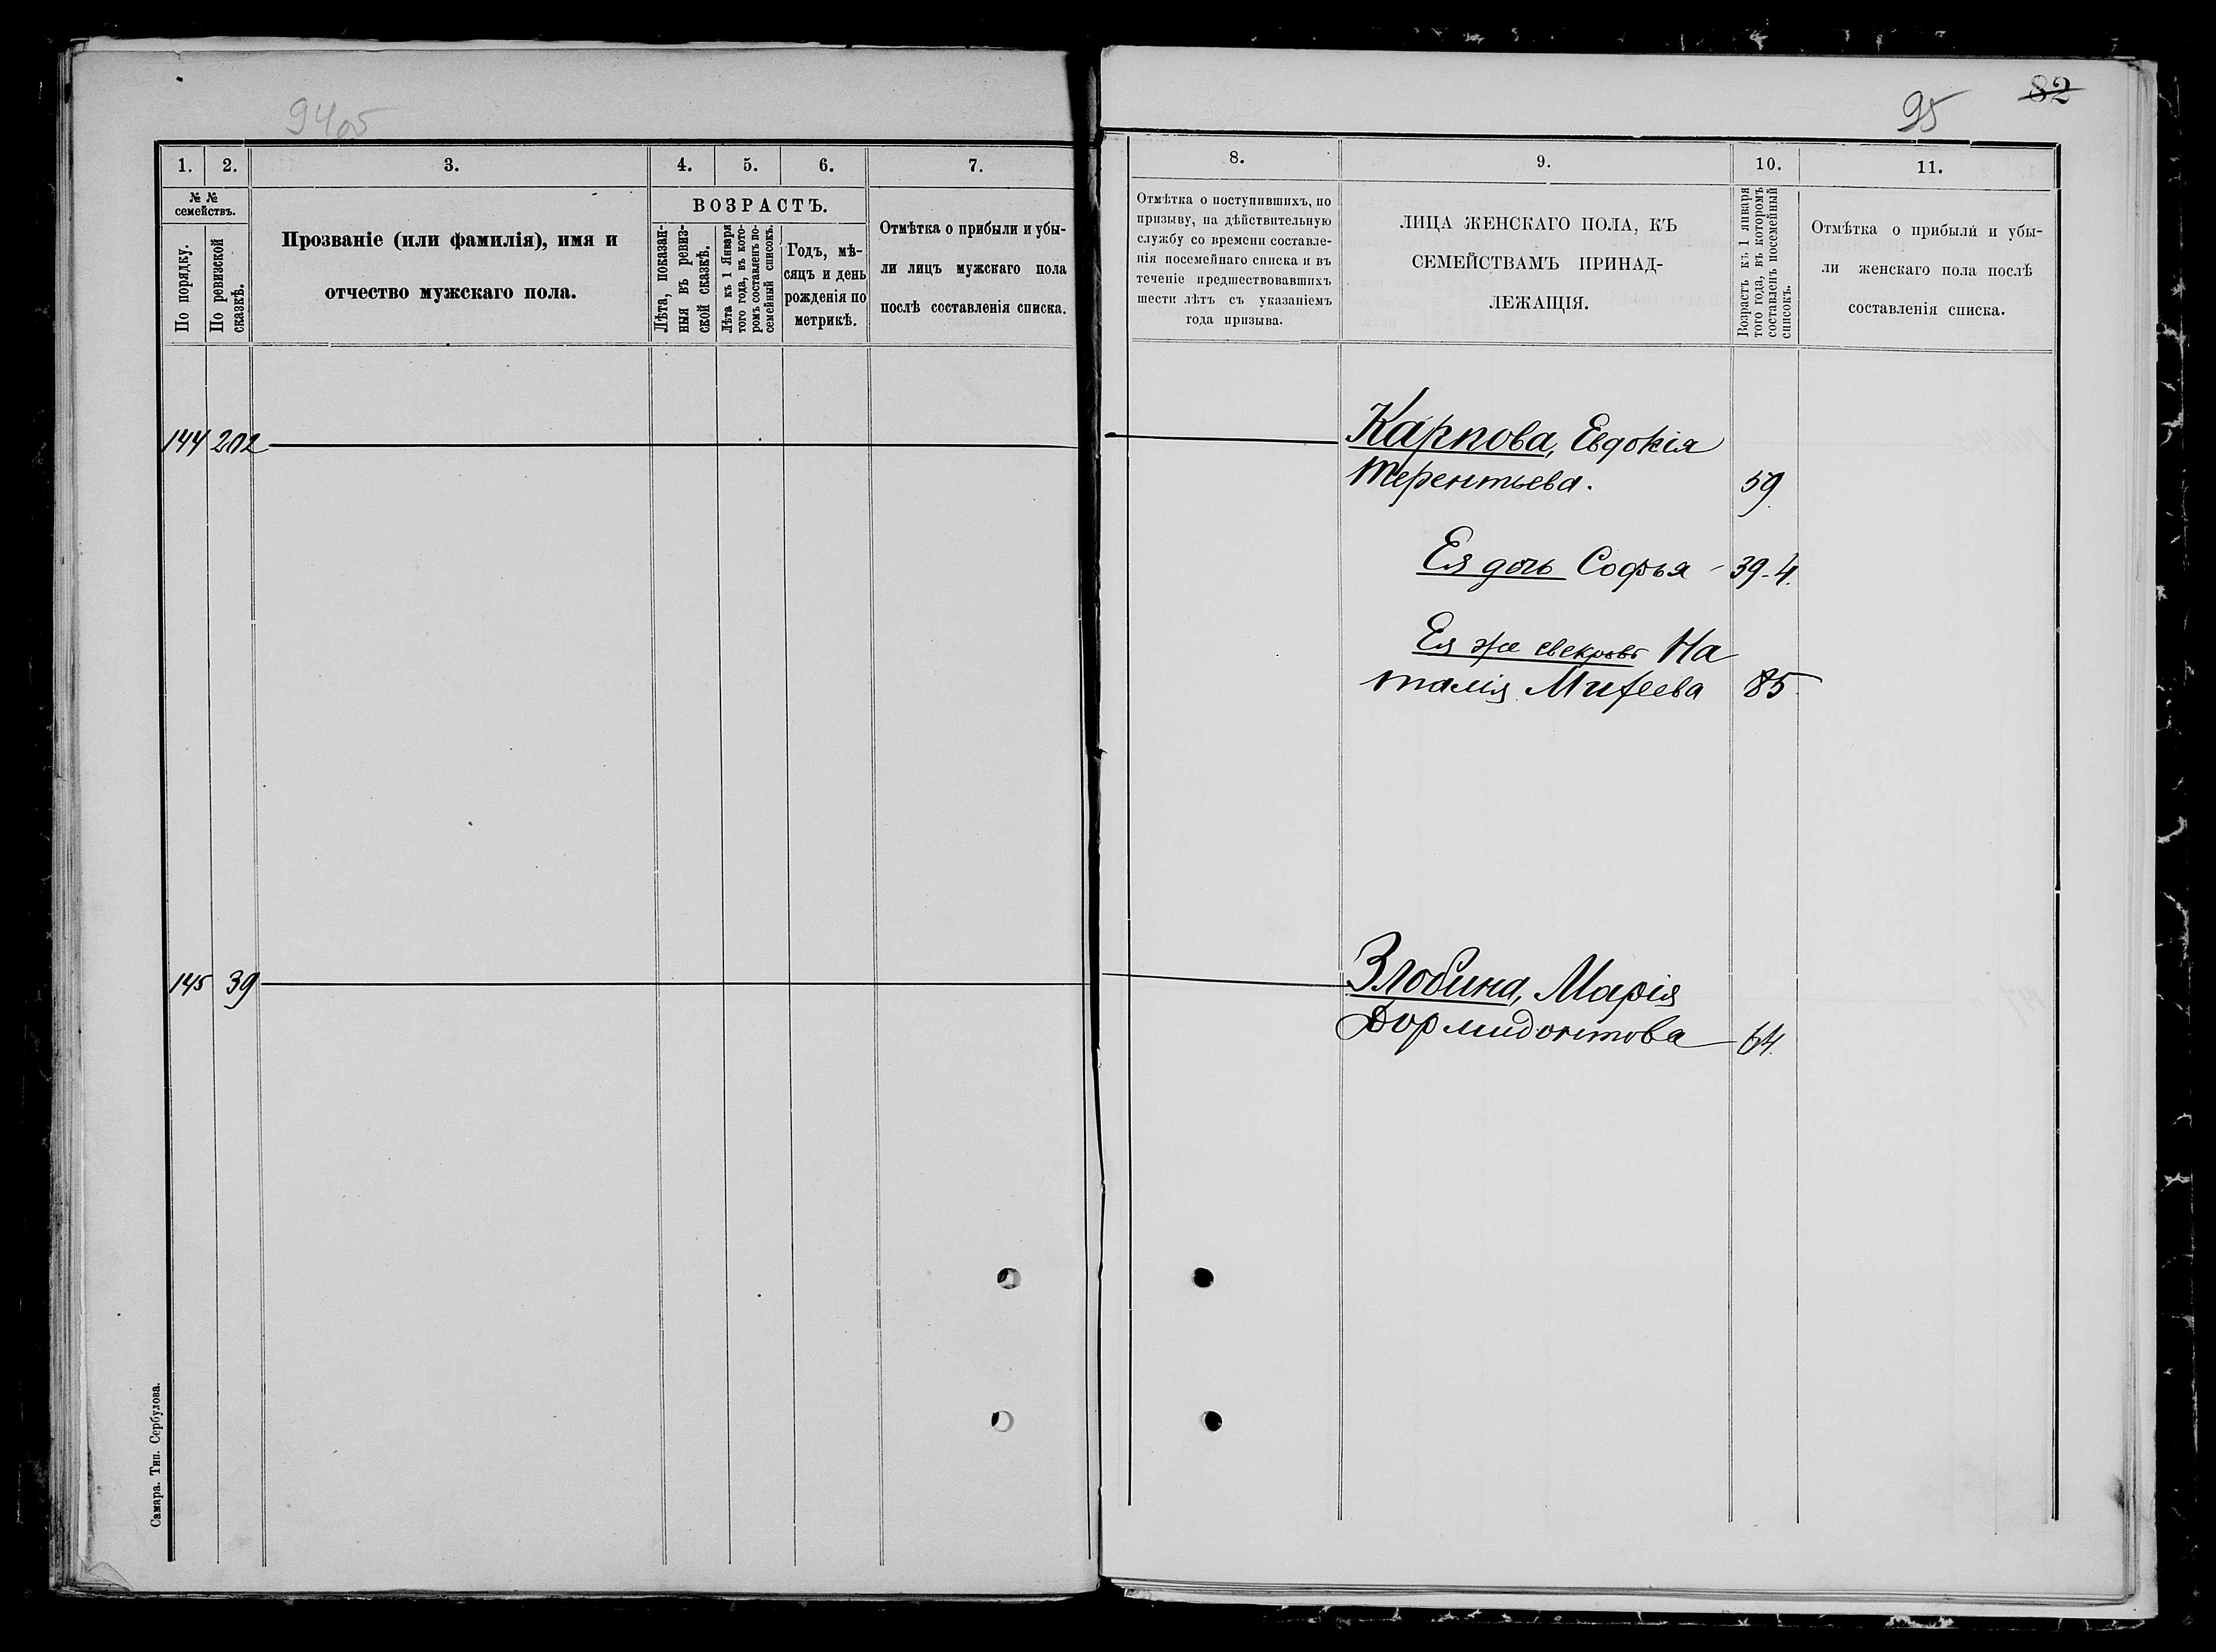 94об
95
82
1.
2.
3.
4.
5.
6.
7.
№ №
семействъ.
По порядку.
По ревизской
сказкѣ.
Прозваніе (или фамилія), имя и
отчество мужскаго пола.
ВОЗРАСТЪ.
Лѣта, показан-
ныя въ ревиз-
ской сказкѣ.
Лѣта къ 1 Января
того года, въ кото-
ромъ составленъ по-
семейный списокъ.
Годъ, мѣ-
сяцъ и день
рожденія по
метрикѣ.
Отмѣтка о прибыли и убы-
ли лицъ мужскаго пола
послѣ составленія списка.
8.
9.
10.
11.
Отмѣтка о поступившихъ, по
призыву, на дѣйствительную
службу со времени составле-
нія посемейнаго списка и въ
теченіе предшествовавшихъ
шести лѣтъ съ указаніемъ
года призыва.
ЛИЦА ЖЕНСКАГО ПОЛА, КЪ
СЕМЕЙСТВАМЪ ПРИНАД-
ЛЕЖАЩІЯ.
Возрастъ къ 1 января
того года, въ которомъ
составленъ посемейный
списокъ.
Отмѣтка о прибыли и убы-
ли женскаго пола послѣ
составленія списка.
144 202
Карпова, Евдокія
Терентьева. 59
Ея дочь Софья - 39-4.
Ея же свекровь На
талія Михеева 85.
145 39
Злобина, Марія
Дормидонтова 64.
Самара. Тип. Сербулова.